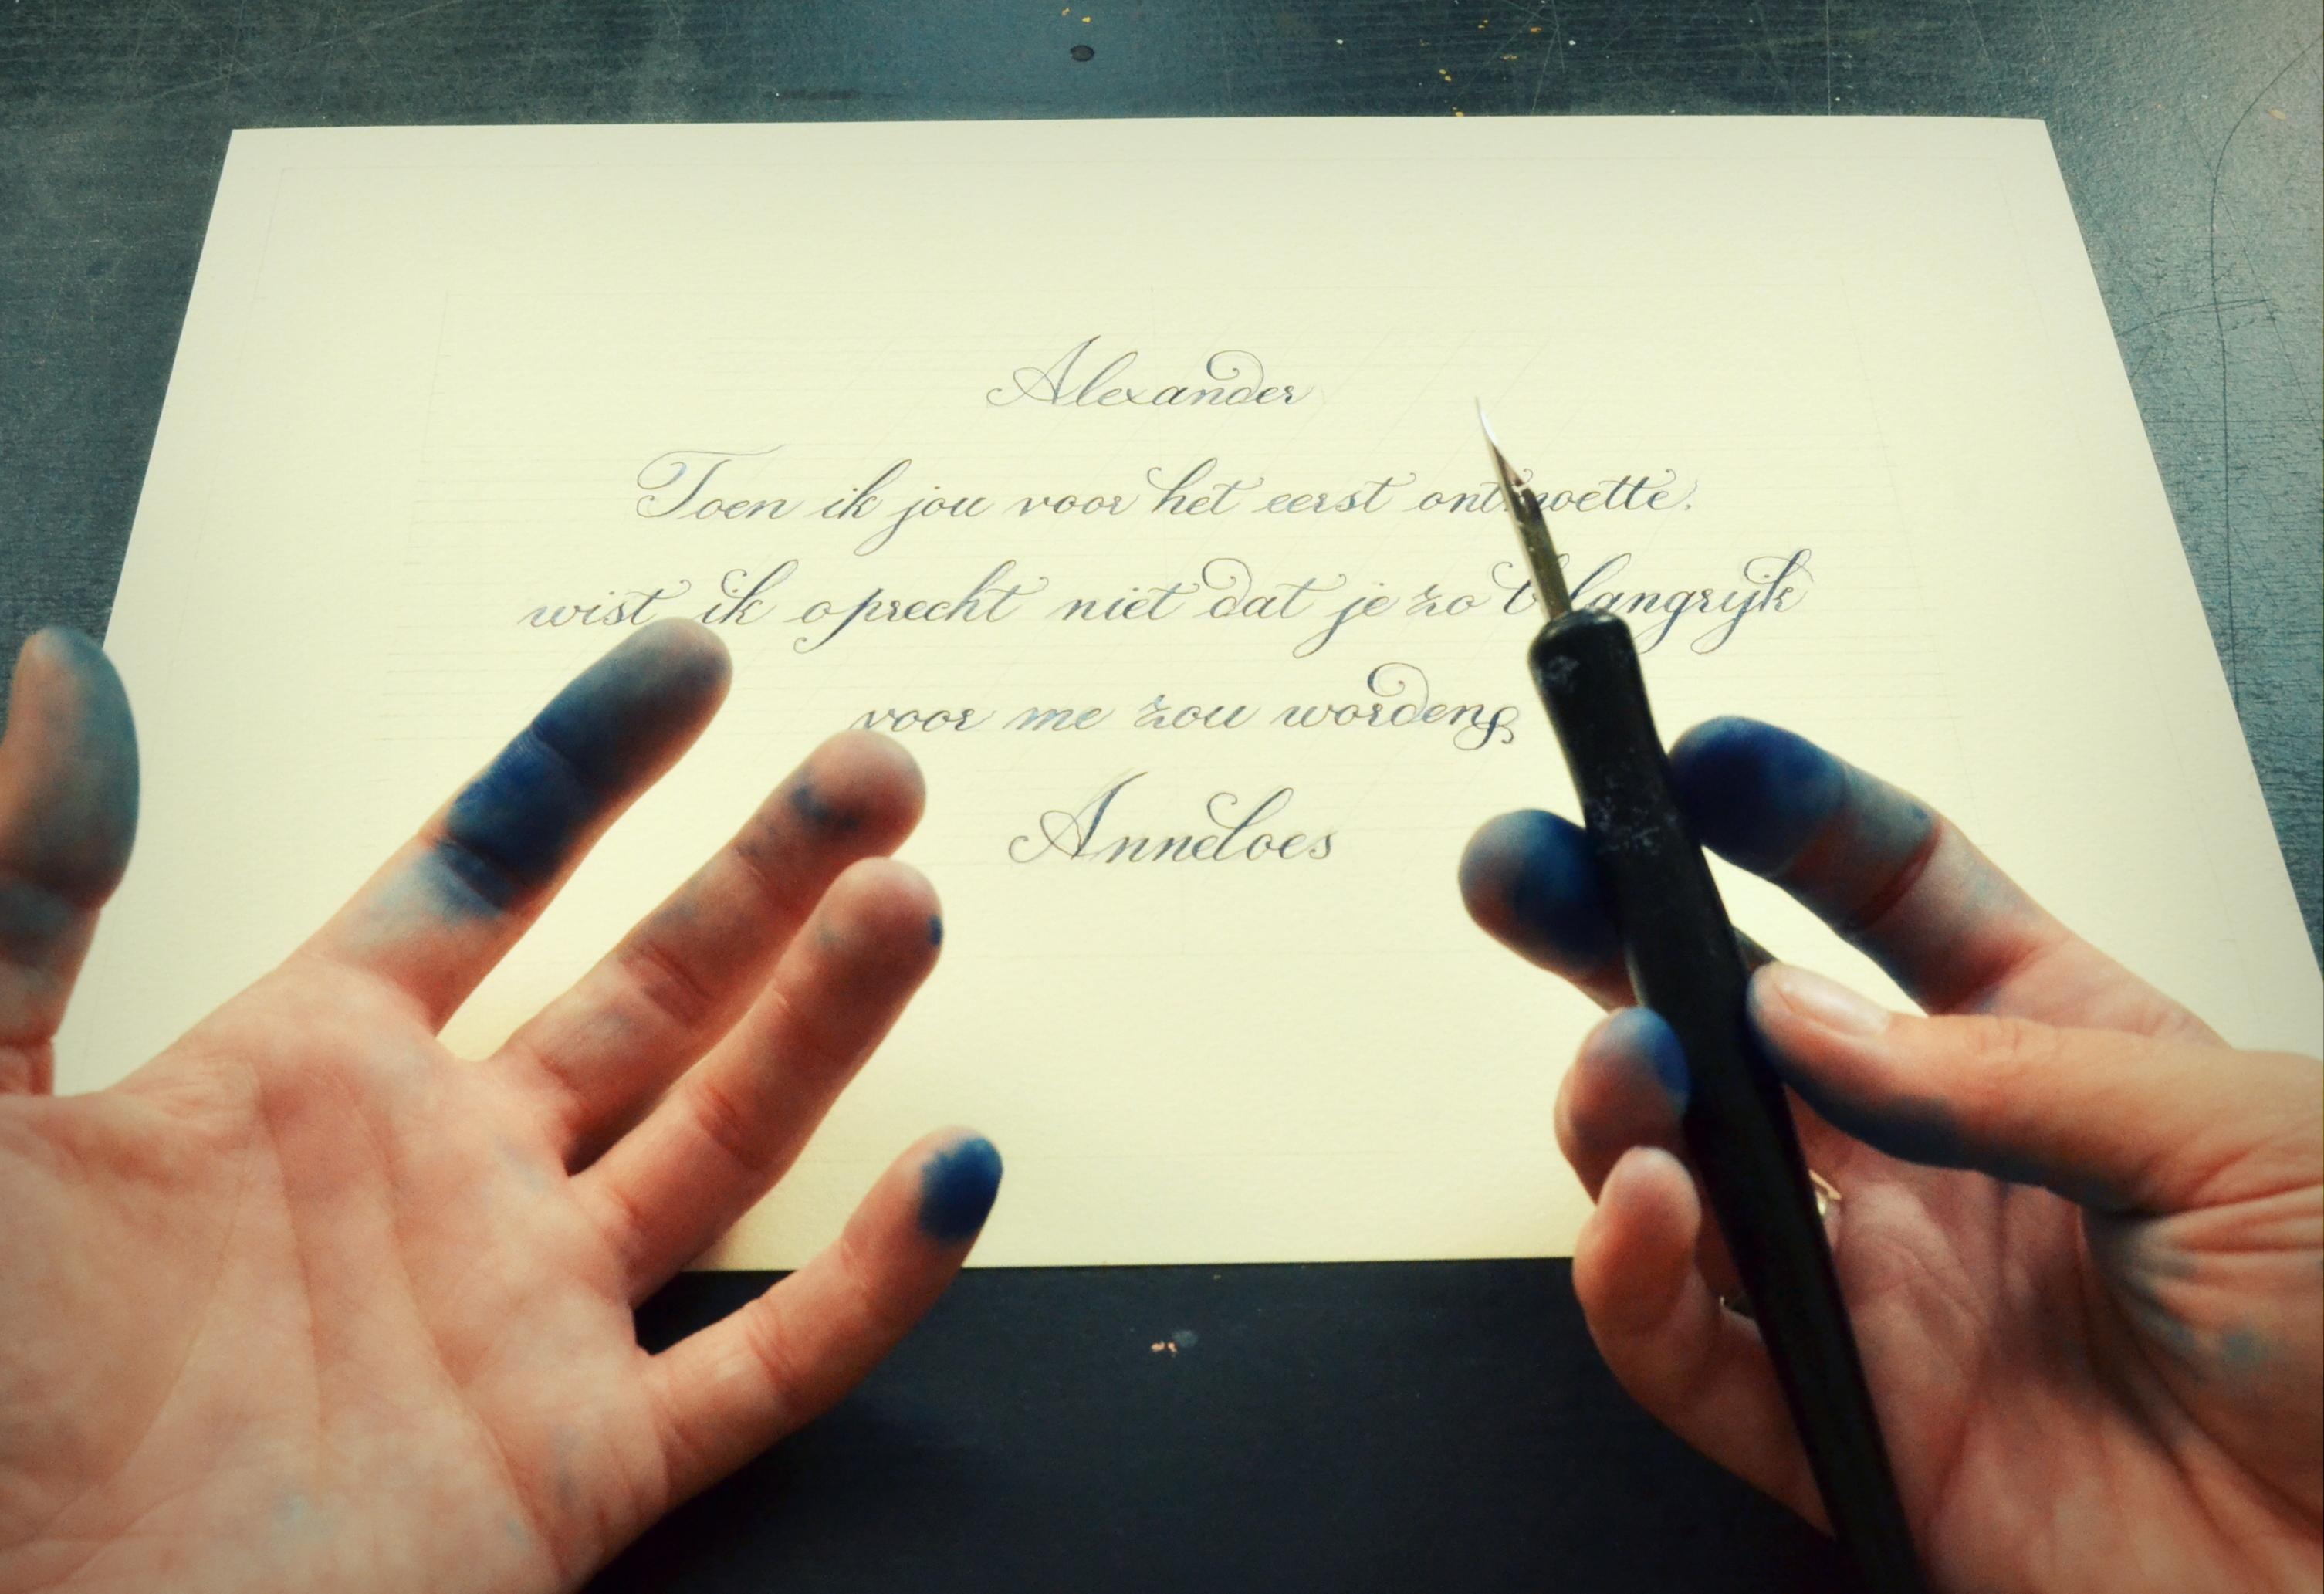 Alexander
Toen ik jou voor het eerst ontmoette.
wist ik oprecht niet dat je zo belangrijk
voor me zou worden
Anneloes